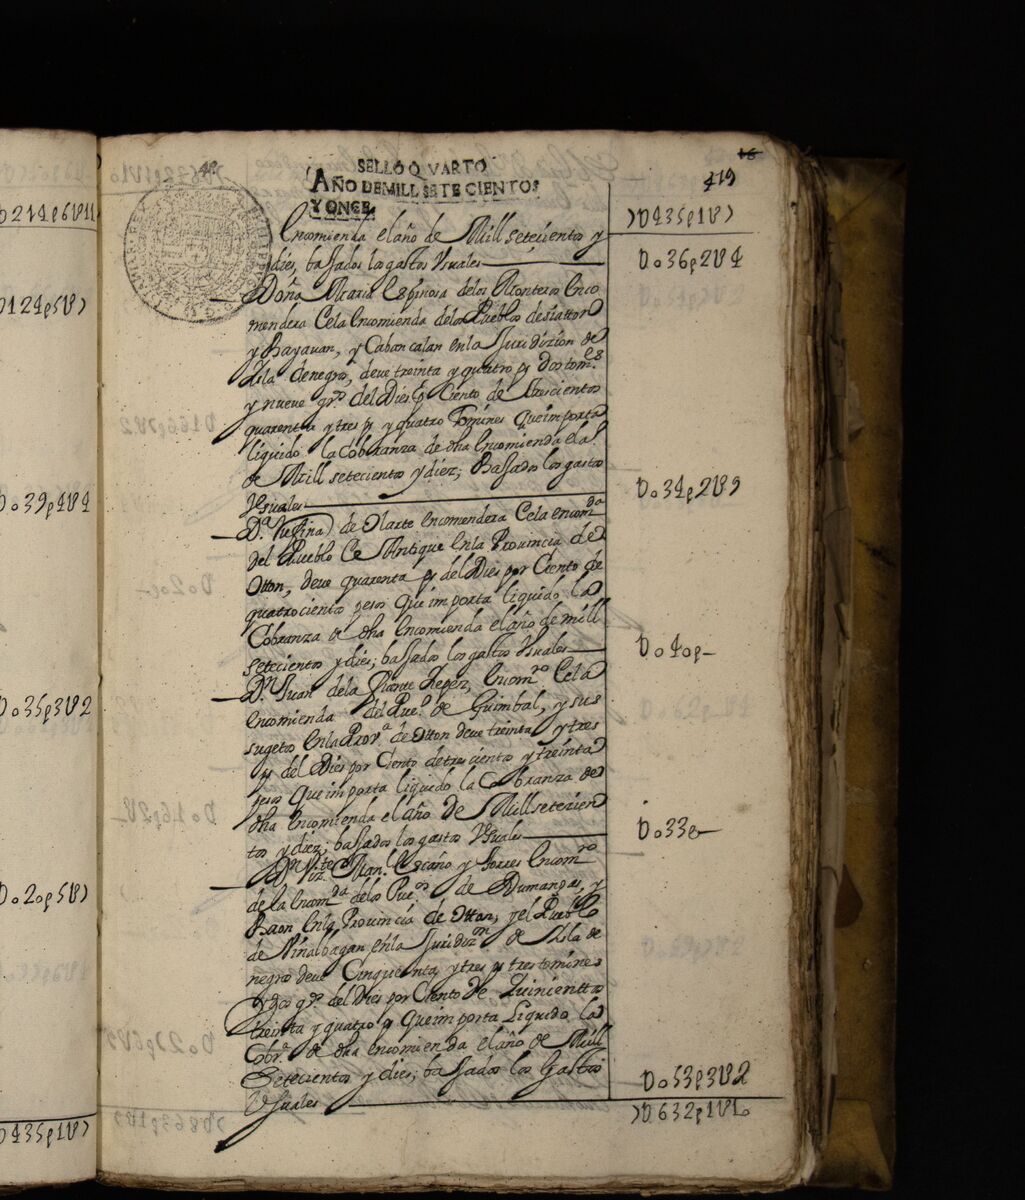 SELLO QVARTO
AÑO DE MILL SETE CIENTOS
Y ONCE.
16
419
Encomienda el año de Mill setecientos y
dies, baßados los gastos Vsuales
Doña Maria Espinosa delos Monteros Enco
mendera Cela Encomienda delos Pueblos de
y Bayauan, y Cabancalan en la Juridizion de
Isla de negros, deve treinta y quatro ps dos tom.es
y nueve gr.s del Dies p Ciento de Trescientos
quarenta y tres ps y quatro Tomines que importa
liquido la Cobranza de dha Encomienda el a.o
de Mill setecientos y diez; Baßados los gastos
Vsuales
D.a Rufina de Olarte encomendera Cela encom.da
del Pueblo Ce Antique en la Prouincia de
Otton, deve quarenta ps del Dies por Ciento de
quatrocientos pesos que importa liquido la
Cobranza de dha Encomienda el año de mill
setecientos y dies; baßados los gastos Vsuales
D.n Juan dela Fuente Yepez, Encom.ro Cela
encomienda del Pue.o de Guimbal, y sus
sugetos en la Prov.a de Otton deve treinta y tres
ps del Dies por Ciento de trescientos y treinta
pesos Que importa liquido la Cobranza de
dha encomienda el año de Mill setecien
tos y diez; baßados los gastos Vsuales
D.n Man.l Escaño y Torres Encom.ro
de la Encom.da delos Pue.os de Dumangas, y
Baon en la Prouincia de Otton, y el Pueblo
de Vinalbagan en la Juridiz.on de Isla de
negros deve Cinquenta y tres ps tres tomines
y dos gr.s del Dies por Ciento de Quinientos
treinta y quatro ps Que importa Liquido la
Cobr.a de dha encomienda el año de Mill
Setecientos y dies; baßados los Gastos
Vsuales
U435p1U
Uo36p2U4
Uo34p2U9
Uo40p
Uo33p
Uo53p3U2
U632p1U
U214p6U11
U124p5U
Uo39p4U4
Uo35p3U2
Uo20p5U
U435p1U